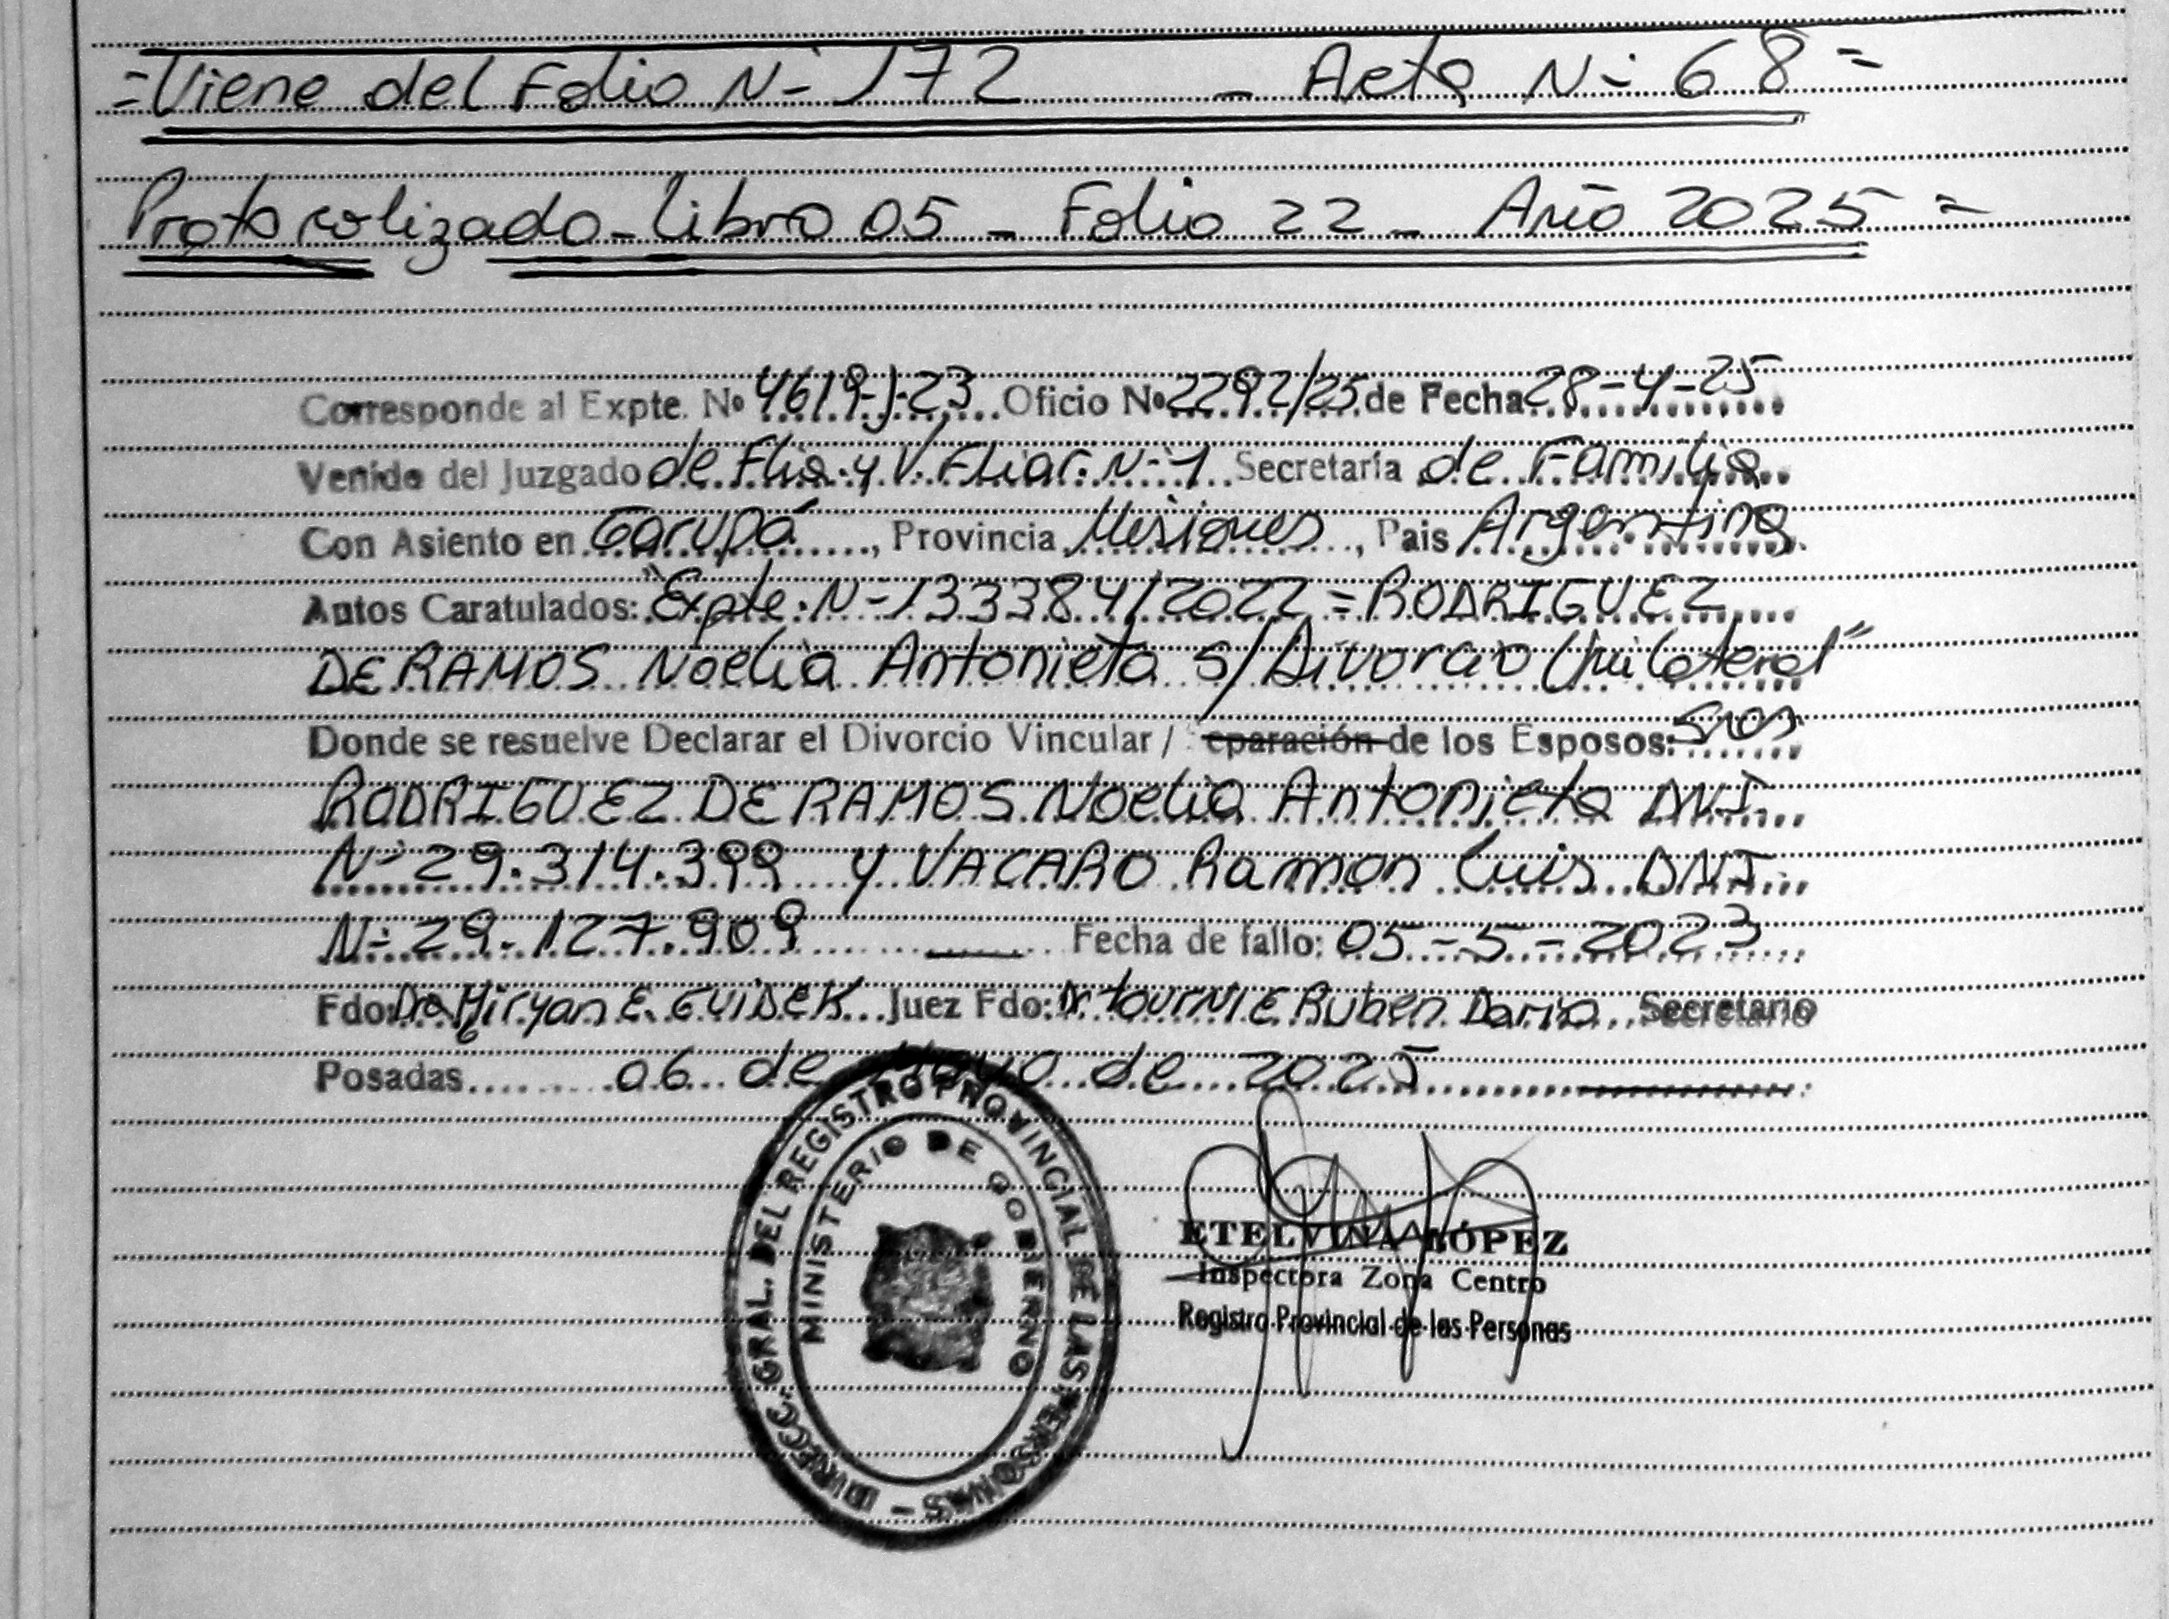 =Viene del Folio N- 172 - Acta N- 68=
Protocolizado - Libro 05 - Folio 22 - Año 2025 =
Corresponde al Expte. Nº 4619-J-23 Oficio Nº 2292/25 de Fecha 28-4-25
Venido del Juzgado de Flia. y V. Fliar. N-1 Secretaría de Familia
Con Asiento en Garupá, Provincia Misiones, Pais Argentina
Autos Caratulados: "Expte. N-133384/2022=RODRIGUEZ
DE RAMOS Noelia Antonieta s/Divorcio Unilateral"
Donde se resuelve Declarar el Divorcio Vincular / eparación de los Esposos: Sres
RODRIGUEZ DE RAMOS Noelia Antonieta DNI
N- 29.314.399 y VACARO Ramon Luis DNI
N- 29.127.909 Fecha de fallo: 05-5-2023
Fdo: Dra Miryan E. GUIDEK Juez Fdo: Dr. TOURNIE Ruben Dario Secretario
Posadas 06 de Mayo de 2025
DIRECC. GRAL. DEL REGISTRO PROVINCIAL DE LAS PERSONAS -
MINISTERIO DE GOBIERNO
ETELVINA LÓPEZ
Inspectora Zona Centro
Registro Provincial de las Personas